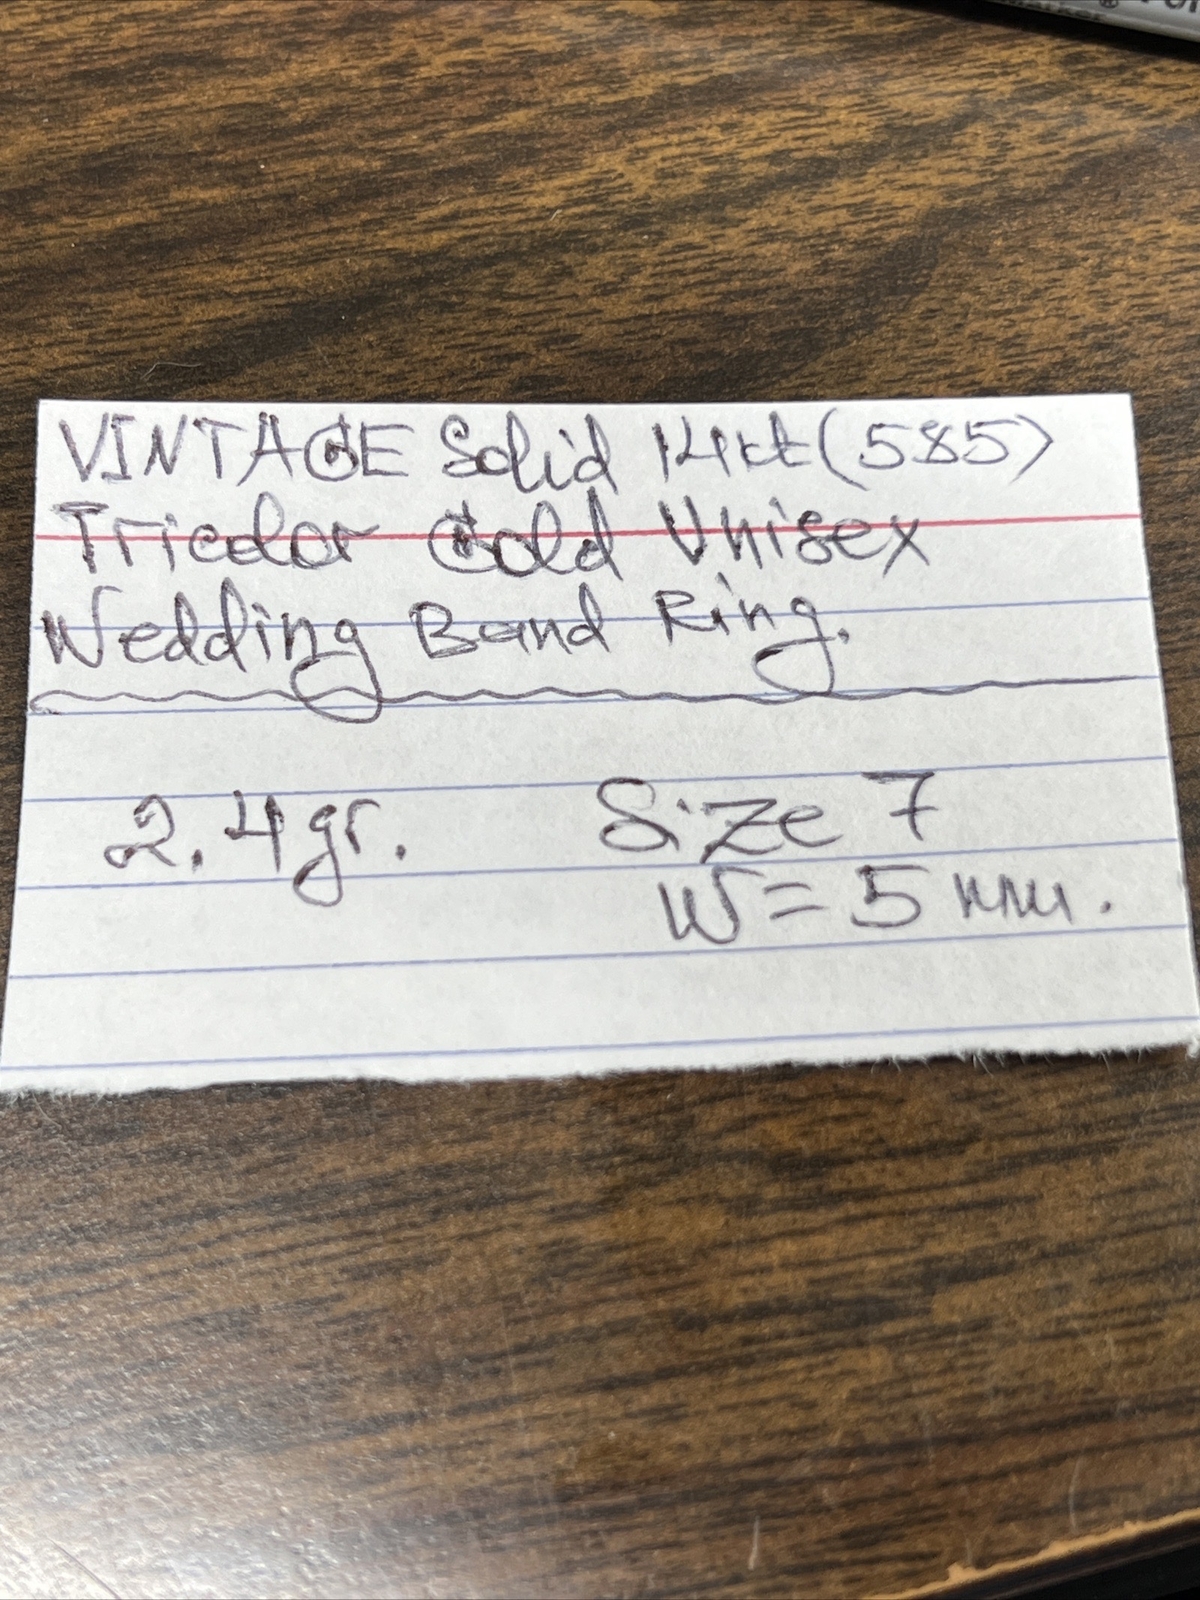 Marker®
VINTAGE Solid 14kt (585)
Tricolor Gold Unisex
Wedding Band Ring.
2.4gr. Size 7
W=5 mm.